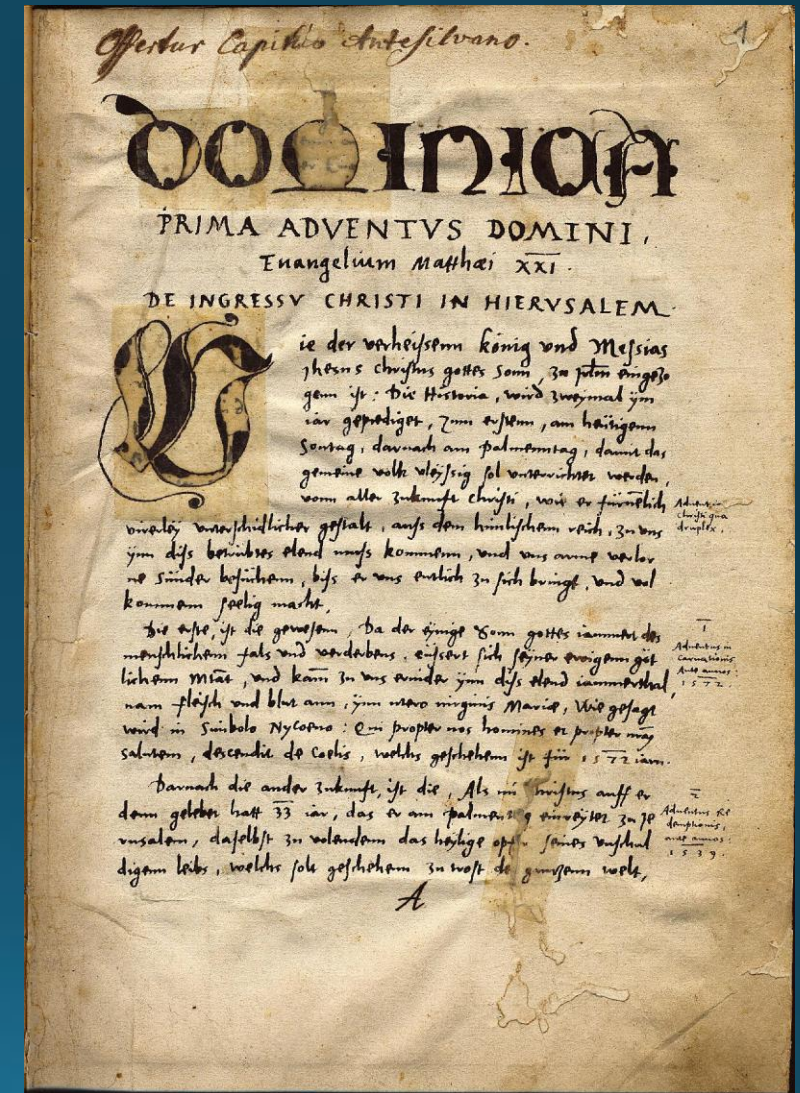 Offertur Capitulo Antesilvano.
1
DOMINICA
PRIMA ADVENTVS DOMINI,
Euangelium Matthæi XXI.
DE INGRESSV CHRISTI IN HIERVSALEM.
Wie der verheissenn könig vnd Messias
Jhesus Christus gottes Sonn, zu eingezo
genn ist: Die Historia, wird zweymal ym
iar geprediget, zum erstenn, am heütigenn
Sontag, darnach am palmenntag, damit das
gemeine volk vleyssig sol vnterrichtet werden,
vonn aller zukunfft Christi, wie er fürnemlich
vierley vnterschidlicher gestalt, auss dem himlischem reich, zu vns
ynn diss betrübtes elend muss kommenn, vnd vns arme verlor
ne Sünder besüchenn, biss er vns entlich zu sich bringt, vnd vol
kommenn seelig macht.
Aduentus
Christi qua
druplex.
Die erste, ist die gewesenn, Da der eynige Sonn gottes iammert des
menschlichenn fals vnd verderbens, eüssert sich seyner ewigenn göt
lichenn Maiestat, vnd kam zu vns ernider ynn diss elend iammerthal,
nam fleisch vnd blut ann, ynn vtero virginis Mariæ, Wie gesagt
wird in Simbolo Nycoeno: Qui propter nos homines et propter nram
salutem, descendit de Coelis, welchs geschehenn ist für 1572 iarn.
I
Aduentus in
carnationis
Ante annos
1572.
Darnach die ander zukunfft, ist die, Als nu Christus auff er
denn gelebet hatt 33 iar, das er am palmentag einreytet zu Je
rusalem, daselbst zu volendenn das heylige opfer seines vnschul
digenn leibs, welchs solt geschehenn zu trost der gantzenn welt,
2
Aduentus Re
demptionis,
ante annos
1539.
A